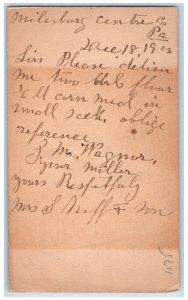 Millersburg Centre Co
Pa
Dec 18, 19
Sirs Please deliver
me two bbl flour
& ll corn meal in
small sacks oblige
reference
S, M, Wagner,
your miller
yours Respetfuly
Mrs S Neff & son